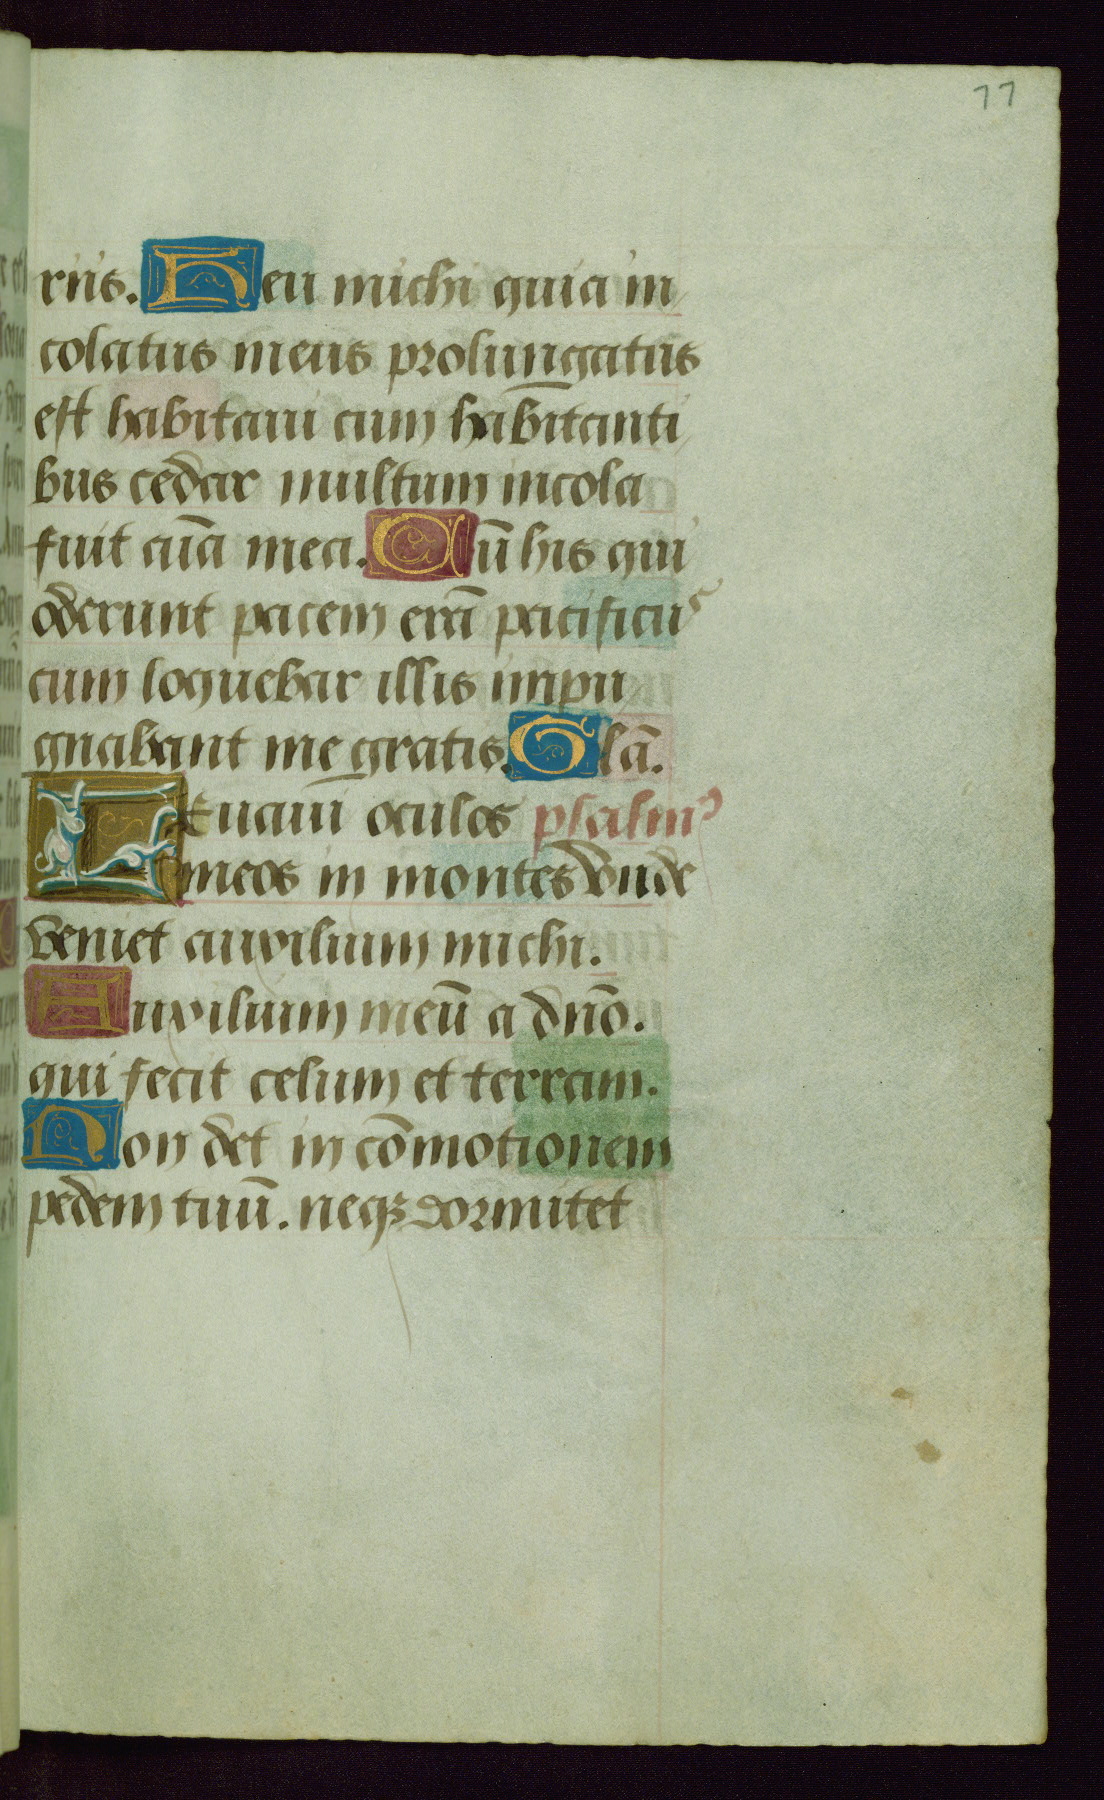 77
riis. Heu michi quia in
colatus meus prolungatus
est habitaui cum habitanti
bus cedar multum incola
fuit aīa mea. Cū his qui
oderunt pacem erā pacificus
cum loquebar illis impu
gnabant me gratis. Glā.
Leuaui oculos psalmꝰ
meos in montes vnde
veniet auxilium michi.
Auxilium meū a dn̄o.
qui fecit celum et terram.
Non det in cōmotionem
pedem tuū. neqꝫ dormitet